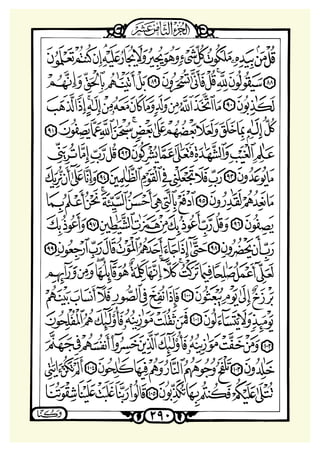 الجُزءُ الثَّامِن عَشَر
قُلْ مَنۢ بِيَدِهِۦ مَلَكُوتُ كُلِّ شَىْءٍ وَهُوَ يُجِيرُ وَلَا يُجَارُ عَلَيْهِ إِن كُنتُمْ تَعْلَمُونَ
٨٨ سَيَقُولُونَ لِلَّهِ قُلْ فَأَنَّىٰ تُسْحَرُونَ ٨٩ بَلْ أَتَيْنَٰهُم بِالْحَقِّ وَإِنَّهُمْ
لَكَٰذِبُونَ ٩٠ مَا اتَّخَذَ اللَّهُ مِن وَلَدٍ وَمَا كَانَ مَعَهُۥ مِنْ إِلَٰهٍ إِذًا لَّذَهَبَ
كُلُّ إِلَٰهٍۭ بِمَا خَلَقَ وَلَعَلَا بَعْضُهُمْ عَلَىٰ بَعْضٍ سُبْحَٰنَ اللَّهِ عَمَّا يَصِفُونَ ٩١
عَٰلِمِ الْغَيْبِ وَالشَّهَٰدَةِ فَتَعَٰلَىٰ عَمَّا يُشْرِكُونَ ٩٢ قُل رَّبِّ إِمَّا تُرِيَنِّى
مَا يُوعَدُونَ ٩٣ رَبِّ فَلَا تَجْعَلْنِى فِى الْقَوْمِ الظَّٰلِمِينَ ٩٤ وَإِنَّا عَلَىٰٓ أَن نُّرِيَكَ
مَا نَعِدُهُمْ لَقَٰدِرُونَ ٩٥ ادْفَعْ بِالَّتِى هِىَ أَحْسَنُ السَّيِّئَةَ نَحْنُ أَعْلَمُ بِمَا
يَصِفُونَ ٩٦ وَقُل رَّبِّ أَعُوذُ بِكَ مِنْ هَمَزَٰتِ الشَّيَٰطِينِ ٩٧ وَأَعُوذُ بِكَ
رَبِّ أَن يَحْضُرُونِ ٩٨ حَتَّىٰٓ إِذَا جَآءَ أَحَدَهُمُ الْمَوْتُ قَالَ رَبِّ ارْجِعُونِ ٩٩
لَعَلِّىٓ أَعْمَلُ صَٰلِحًا فِيمَا تَرَكْتُ كَلَّآ إِنَّهَا كَلِمَةٌ هُوَ قَآئِلُهَا وَمِن وَرَآئِهِم
بَرْزَخٌ إِلَىٰ يَوْمِ يُبْعَثُونَ ١٠٠ فَإِذَا نُفِخَ فِى الصُّورِ فَلَآ أَنسَابَ بَيْنَهُمْ
يَوْمَئِذٍ وَلَا يَتَسَآءَلُونَ ١٠١ فَمَن ثَقُلَتْ مَوَٰزِينُهُۥ فَأُو۟لَٰٓئِكَ هُمُ الْمُفْلِحُونَ
١٠٢ وَمَنْ خَفَّتْ مَوَٰزِينُهُۥ فَأُو۟لَٰٓئِكَ الَّذِينَ خَسِرُوٓا۟ أَنفُسَهُمْ فِى جَهَنَّمَ
خَٰلِدُونَ ١٠٣ تَلْفَحُ وُجُوهَهُمُ النَّارُ وَهُمْ فِيهَا كَٰلِحُونَ ١٠٤ أَلَمْ تَكُنْ ءَايَٰتِى
تُتْلَىٰ عَلَيْكُمْ فَكُنتُم بِهَا تُكَذِّبُونَ ١٠٥ قَالُوا۟ رَبَّنَا غَلَبَتْ عَلَيْنَا شِقْوَتُنَا
٢٩٠
وَكُنَّا